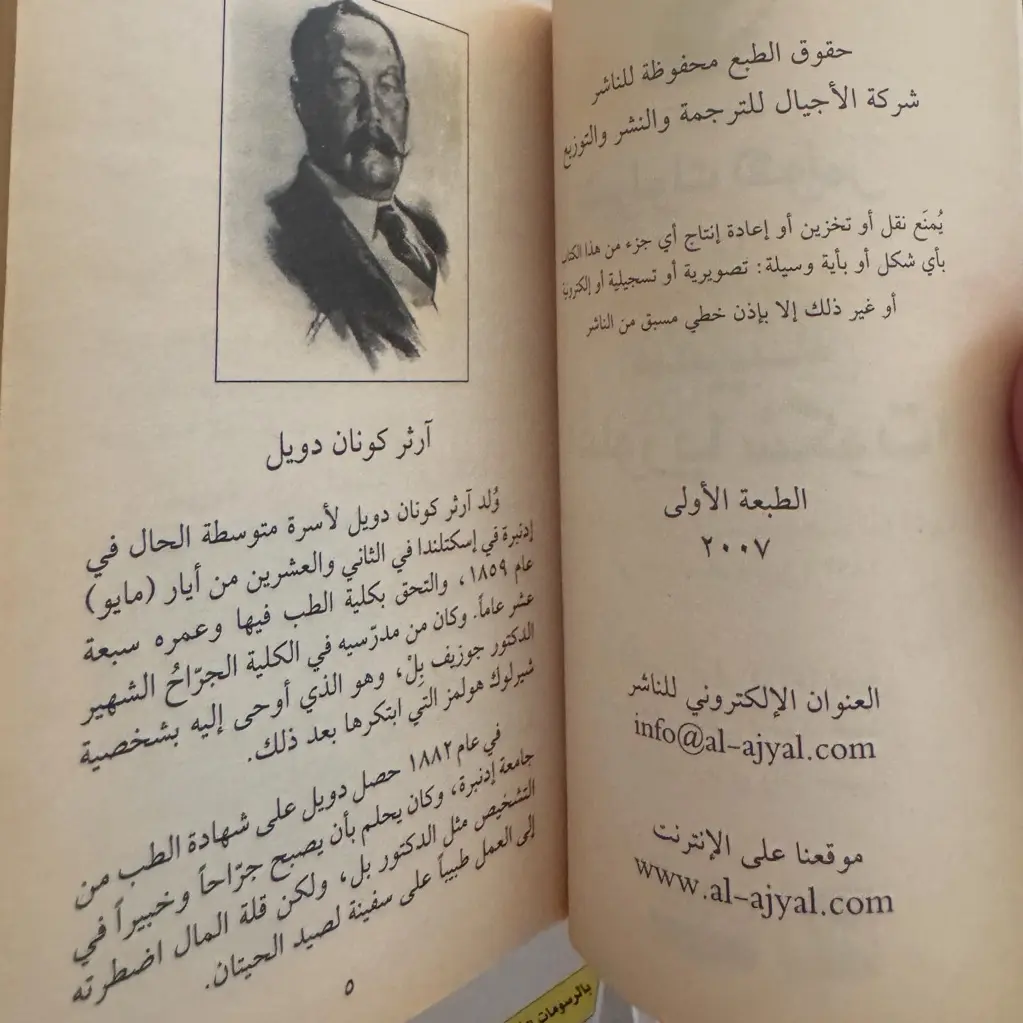 حقوق الطبع محفوظة للناشر
شركة الأجيال للترجمة والنشر والتوزيع
يُمنَع نقل أو تخزين أو إعادة إنتاج أي جزء من هذا الكتاب
بأي شكل أو بأية وسيلة: تصويرية أو تسجيلية أو إلكترونية
أو غير ذلك إلا بإذن خطي مسبق من الناشر
الطبعة الأولى
٢٠٠٧
العنوان الإلكتروني للناشر
info@al-ajyal.com
موقعنا على الإنترنت
www.al-ajyal.com
آرثر كونان دويل
وُلد آرثر كونان دويل لأسرة متوسطة الحال في
إدنبرة في إسكتلندا في الثاني والعشرين من أيار (مايو)
عام ١٨٥٩، والتحق بكلية الطب فيها وعمره سبعة
عشر عاماً. وكان من مدرّسيه في الكلية الجرّاحُ الشهير
الدكتور جوزيف بِلْ، وهو الذي أوحى إليه بشخصية
شيرلوك هولمز التي ابتكرها بعد ذلك.
في عام ١٨٨٢ حصل دويل على شهادة الطب من
جامعة إدنبرة، وكان يحلم بأن يصبح جرّاحاً وخبيراً في
التشخيص مثل الدكتور بل، ولكن قلة المال اضطرته
إلى العمل طبيباً على سفينة لصيد الحيتان.
٥
بالرسومات